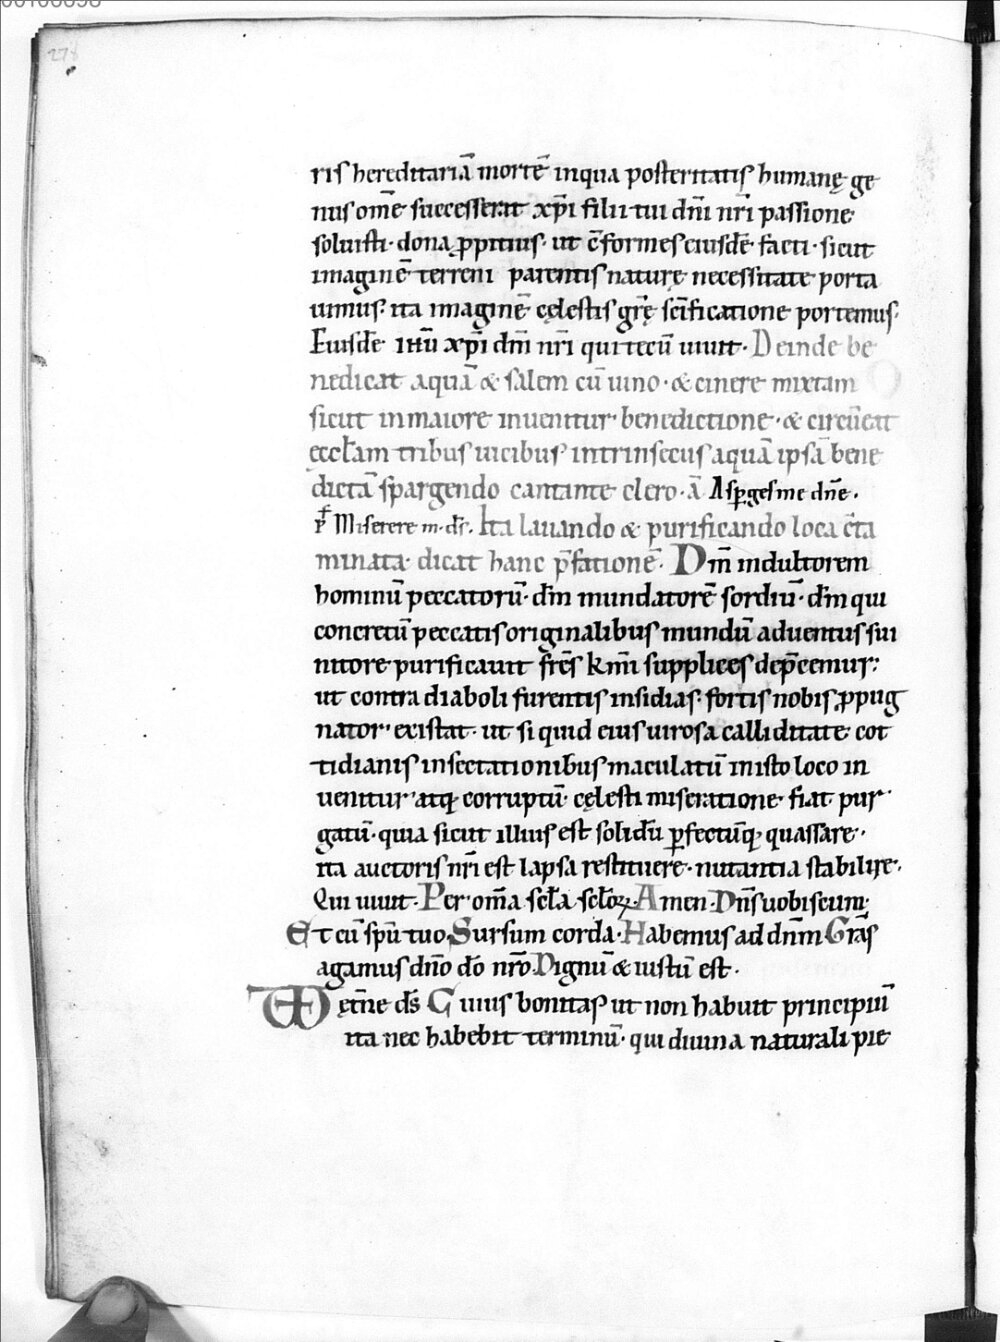 278
ris hereditariā mortē inqua posteritatis humanę ge
nus om̄e successerat xp̄i filii tui dn̄i nr̄i passione
soluisti · dona ꝓpitius · ut c̄formes eiusdē facti · sicut
imaginē terreni parentis naturę necessitate porta
uimus · ita imaginē cęlestis gr̄ę sc̄ificatione portemus ·
Eiusdē ihū xp̄i dn̄i nr̄i qui tecū uiuit · Deinde be
nedicat aquā & salem cū uino · & cinere mixtam
sicut in maiore inuenitur benedictione · & circūeat
ęccłam tribus uicibus intrinsecus aquā ipsā bene
dictā spargendo cantante clero · ā Asꝑges me dn̄e ·
Miserere m · ds̄ · Ita lauando & purificando loca c̄ta
minata · dicat hanc p̄fationē · Dm̄ indultorem
hominū peccatorū · dm̄ mundatorē sordiū · dm̄ qui
concretū peccatis originalibus mundū aduentus sui
nitore purificauit fr̄es km̄i supplices dep̄cemur ·
ut contra diaboli furentis insidias · fortis nobis ꝓpug
nator existat · ut si quid eius uirosa calliditate cot
tidianis infectationibus maculatū in isto loco in
uenitur atq; corruptū · cęlesti miseratione fiat pur
gatū · quia sicut illius est solidū ꝑfectūq; quassare ·
ita auctoris nr̄i est lapsa restituere · nutantia stabilire ·
Qui uiuit · Per om̄a scła scłoꝝ · Amen · Dn̄s uobiscum ·
Et cū sp̄u tuo · Sursum corda · Habemus ad dn̄m Gr̄as
agamus dn̄o dō nr̄o Dignū & iustū est ·
VD ęt̄ne ds̄ Cuius bonitas ut non habuit principiū
ita nec habebit terminū · qui diuina naturali pie